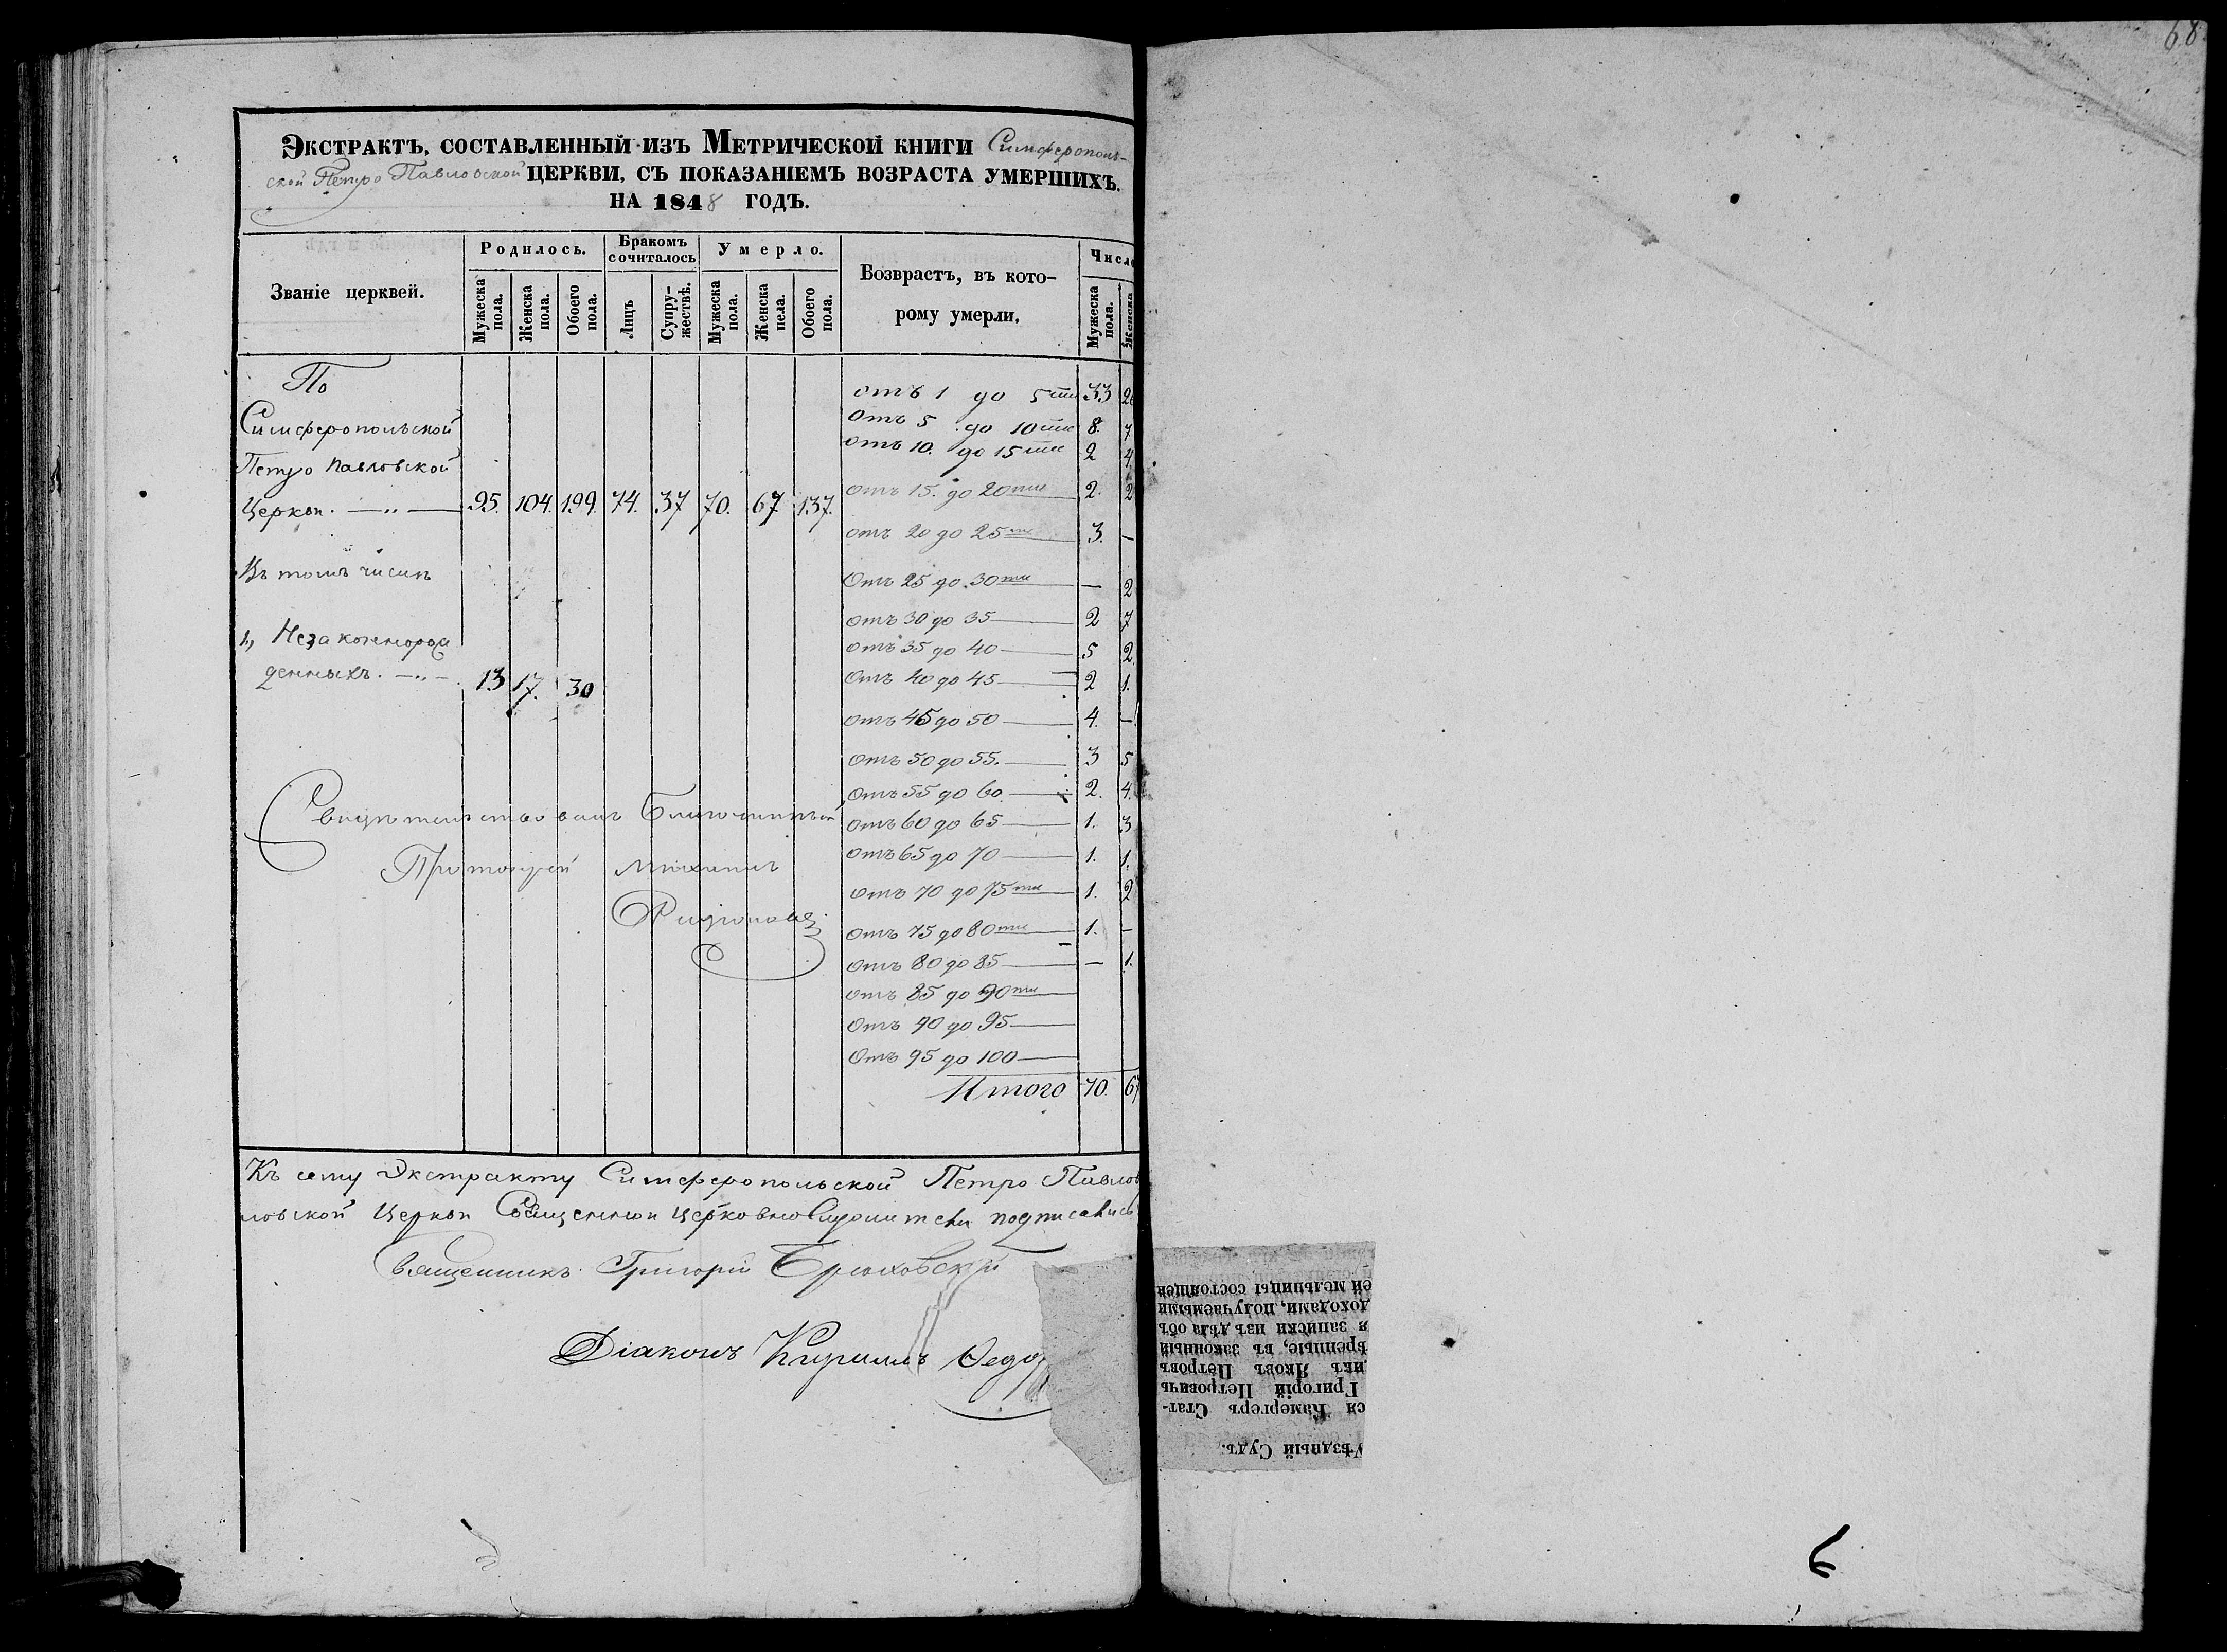 68.
Экстрактъ, составленный изъ Метрической книги Симферополь-
ской Петро Павловской церкви, съ показаніемъ возраста умершихъ.
на 1848 годъ.
Званіе церквей.
Родилось.
Мужеска пола.
Женска пола.
Обоего пола.
Бракомъ сочиталось
Лицъ
Супружествъ.
Умерло.
Мужеска пола.
Женска пела.
Обоего пола.
Возврастъ, въ кото-
рому умерли.
Число
Мужеска пола.
Женска
По
Симферопольской
Петро Павловской
Церкви. —„— 95. 104. 199. 74. 37 70. 67 137.
Въ томъ числѣ
1, Незаконнорож
денныхъ. —„— 13 17. 30
отъ 1 до 5ти 33 26
Отъ 5 до 10ти 8. 7
отъ 10. до 15ти 2 4
отъ 15. до 20ти 2. 2
отъ 20 до 25ти 3. —
Отъ 25 до 30ти — 2
отъ 30 до 35 — 2 7
отъ 35 до 40 — 5 2.
Отъ 40 до 45 — 2 1.
отъ 45 до 50 — 4. —
Отъ 50 до 55. — 3 5
Отъ 55 до 60 — 2. 4.
отъ 60 до 65 — 1. 3
отъ 65 до 70 — 1. 1.
отъ 70 до 75ти 1. 2
отъ 75 до 80ти 1. —
отъ 80 до 85 — — 1.
отъ 85 до 90ти
Отъ 90 до 95 —
Отъ 95 до 100 —
Итого 70. 67
Свидѣтельствовалъ Благочинный
Протоіерей Михаилъ
Къ сему Экстракту Симферопольской Петро Павлов
ловской Церкви Священно и Церковно Служители подписались
Священникъ Григорій
Діаконъ Кириллъ Ѳедо
ей мельницы состоящей
доходами, получаемыми
я записки изъ дѣла объ
ѣренные, въ законный
икъ Яковъ Петровъ
Григорій Петровичъ
ся Камергеръ Стат-
Уѣздный Судъ.
6